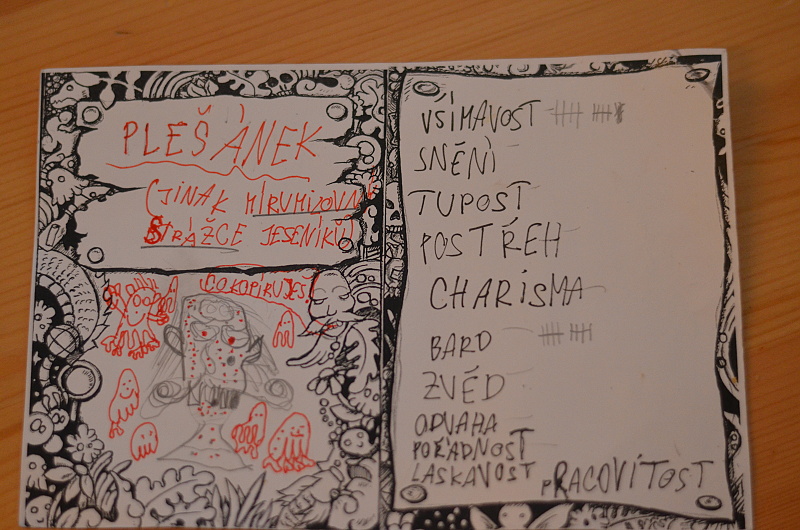 PLEŠÁNEK
(JINAK MÍRUMIZOVNÍ
STRÁŽCE JESENÍKŮ)
CO KOPÍRUJEŠ
VŠÍMAVOST
SNĚNÍ
TUPOST
POSTŘEH
CHARISMA
BARD
ZVĚD
ODVAHA
POŘÁDNOST
LASKAVOST
PRACOVÍTOST